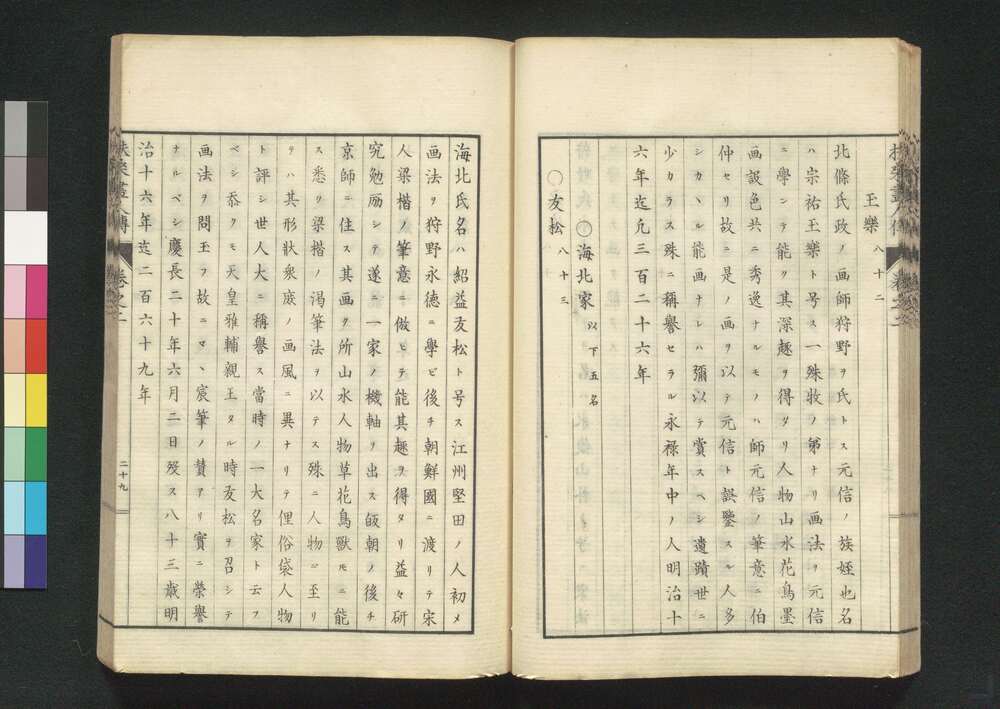 玉樂 八十二
北條氏政ノ画師狩野ヲ氏トス元信ノ族姪也名
ハ宗祐玉樂ト号ス一殊牧ノ第ナリ画法ヲ元信
ニ學ンテ能ク其深趣ヲ得タリ人物山水花鳥墨
画設色共ニ秀逸ナルモノハ師元信ノ筆意ニ伯
仲セリ故ニ是ノ画ヲ以テ元信ト誤鑒スル人多
シカヽル能画ナレハ彌以テ賞スベシ遺蹟世ニ
少カラス殊ニ稱譽セラル永禄年中ノ人明治十
六年迄凢三百二十六年
○海北家 以下五名
○友松 八十三
海北氏名ハ紹益友松ト号ス江州堅田ノ人初メ
画法ヲ狩野永徳ニ學ビ後チ朝鮮國ニ渡リテ宋
人梁楷ノ筆意ニ倣ヒテ能其趣ヲ得タリ益々研
究勉励シテ遂ニ一家ノ機軸ヲ出ス皈朝ノ後チ
京師ニ住ス其画ク所山水人物草花鳥獣モニ能
ス悉ク梁楷ノ渇筆法ヲ以テス殊ニ人物ニ至リ
テハ其形状衆庶ノ画風ニ異ナリテ俚俗袋人物
ト評シ世人大ニ稱譽ス當時ノ一大名家ト云フ
ベシ忝クモ天皇雅輔親王タル時友松ヲ召シテ
画法ヲ問玉フ故ニマヽ宸筆ノ賛アリ實ニ榮譽
ナルベシ慶長二十年六月二日歿ス八十三歳明
治十六年迄二百六十九年
扶桑畫人傳 巻之二 二十九